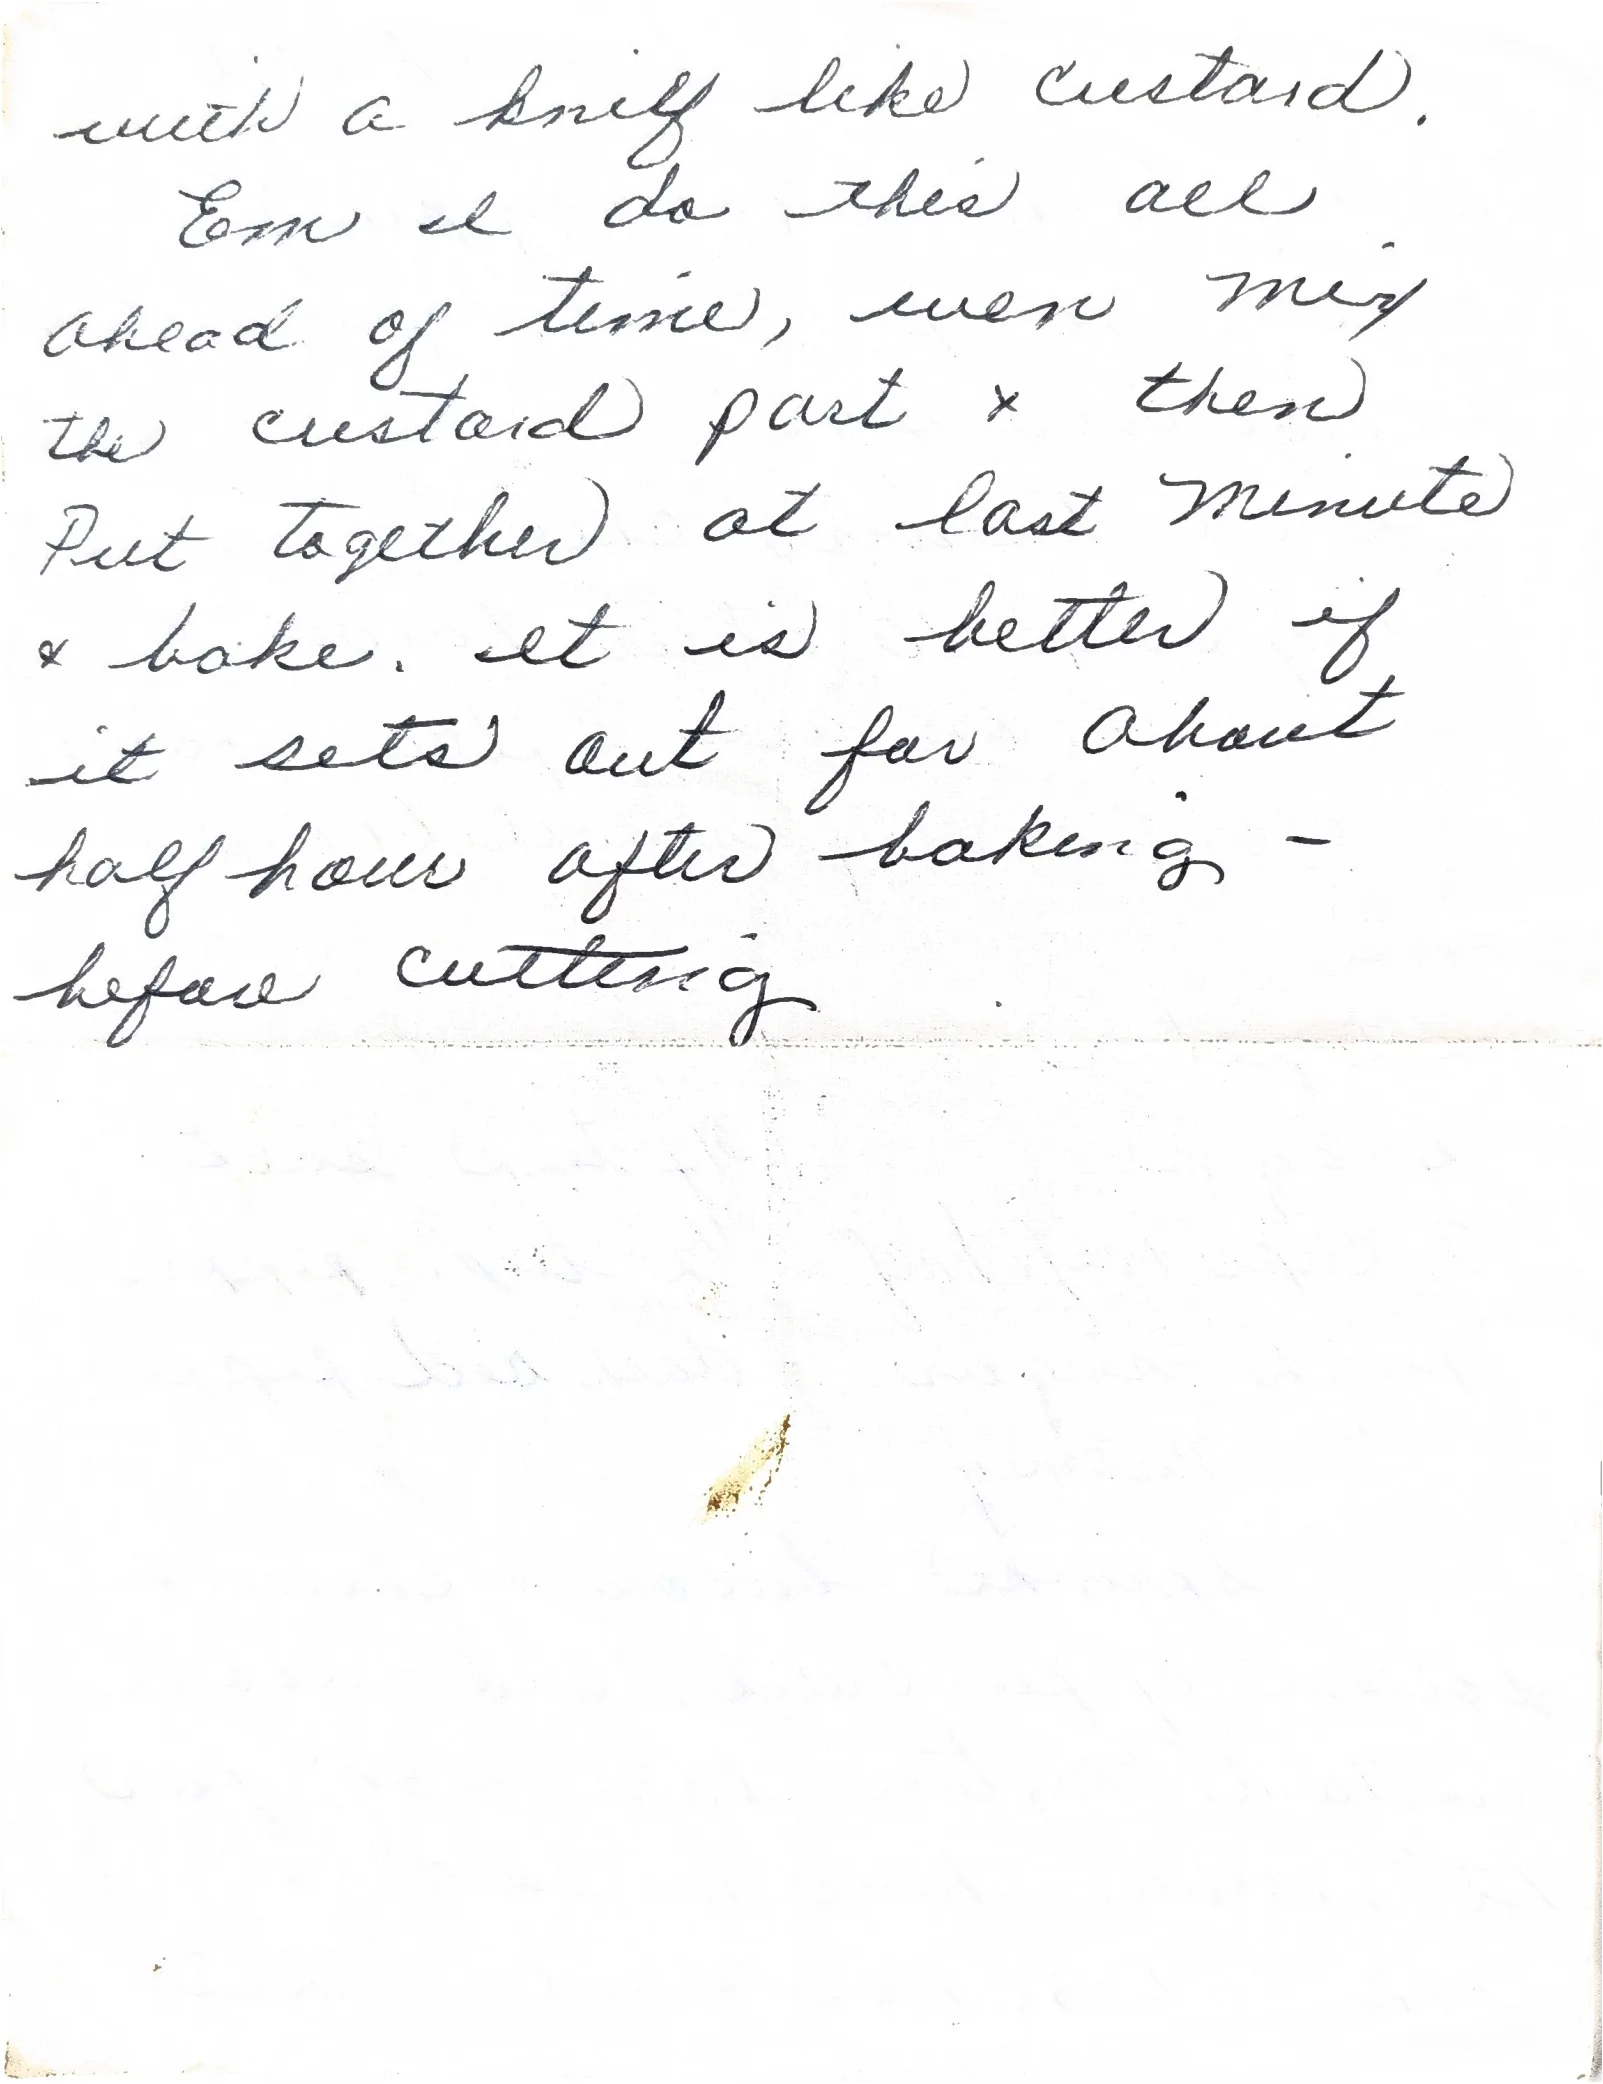 with a knif like custard.
Em I do this all
ahead of time, even mix
the custard part & then
Put together at last minute
& bake. It is better if
it sets out for about
half hour after baking -
before cutting